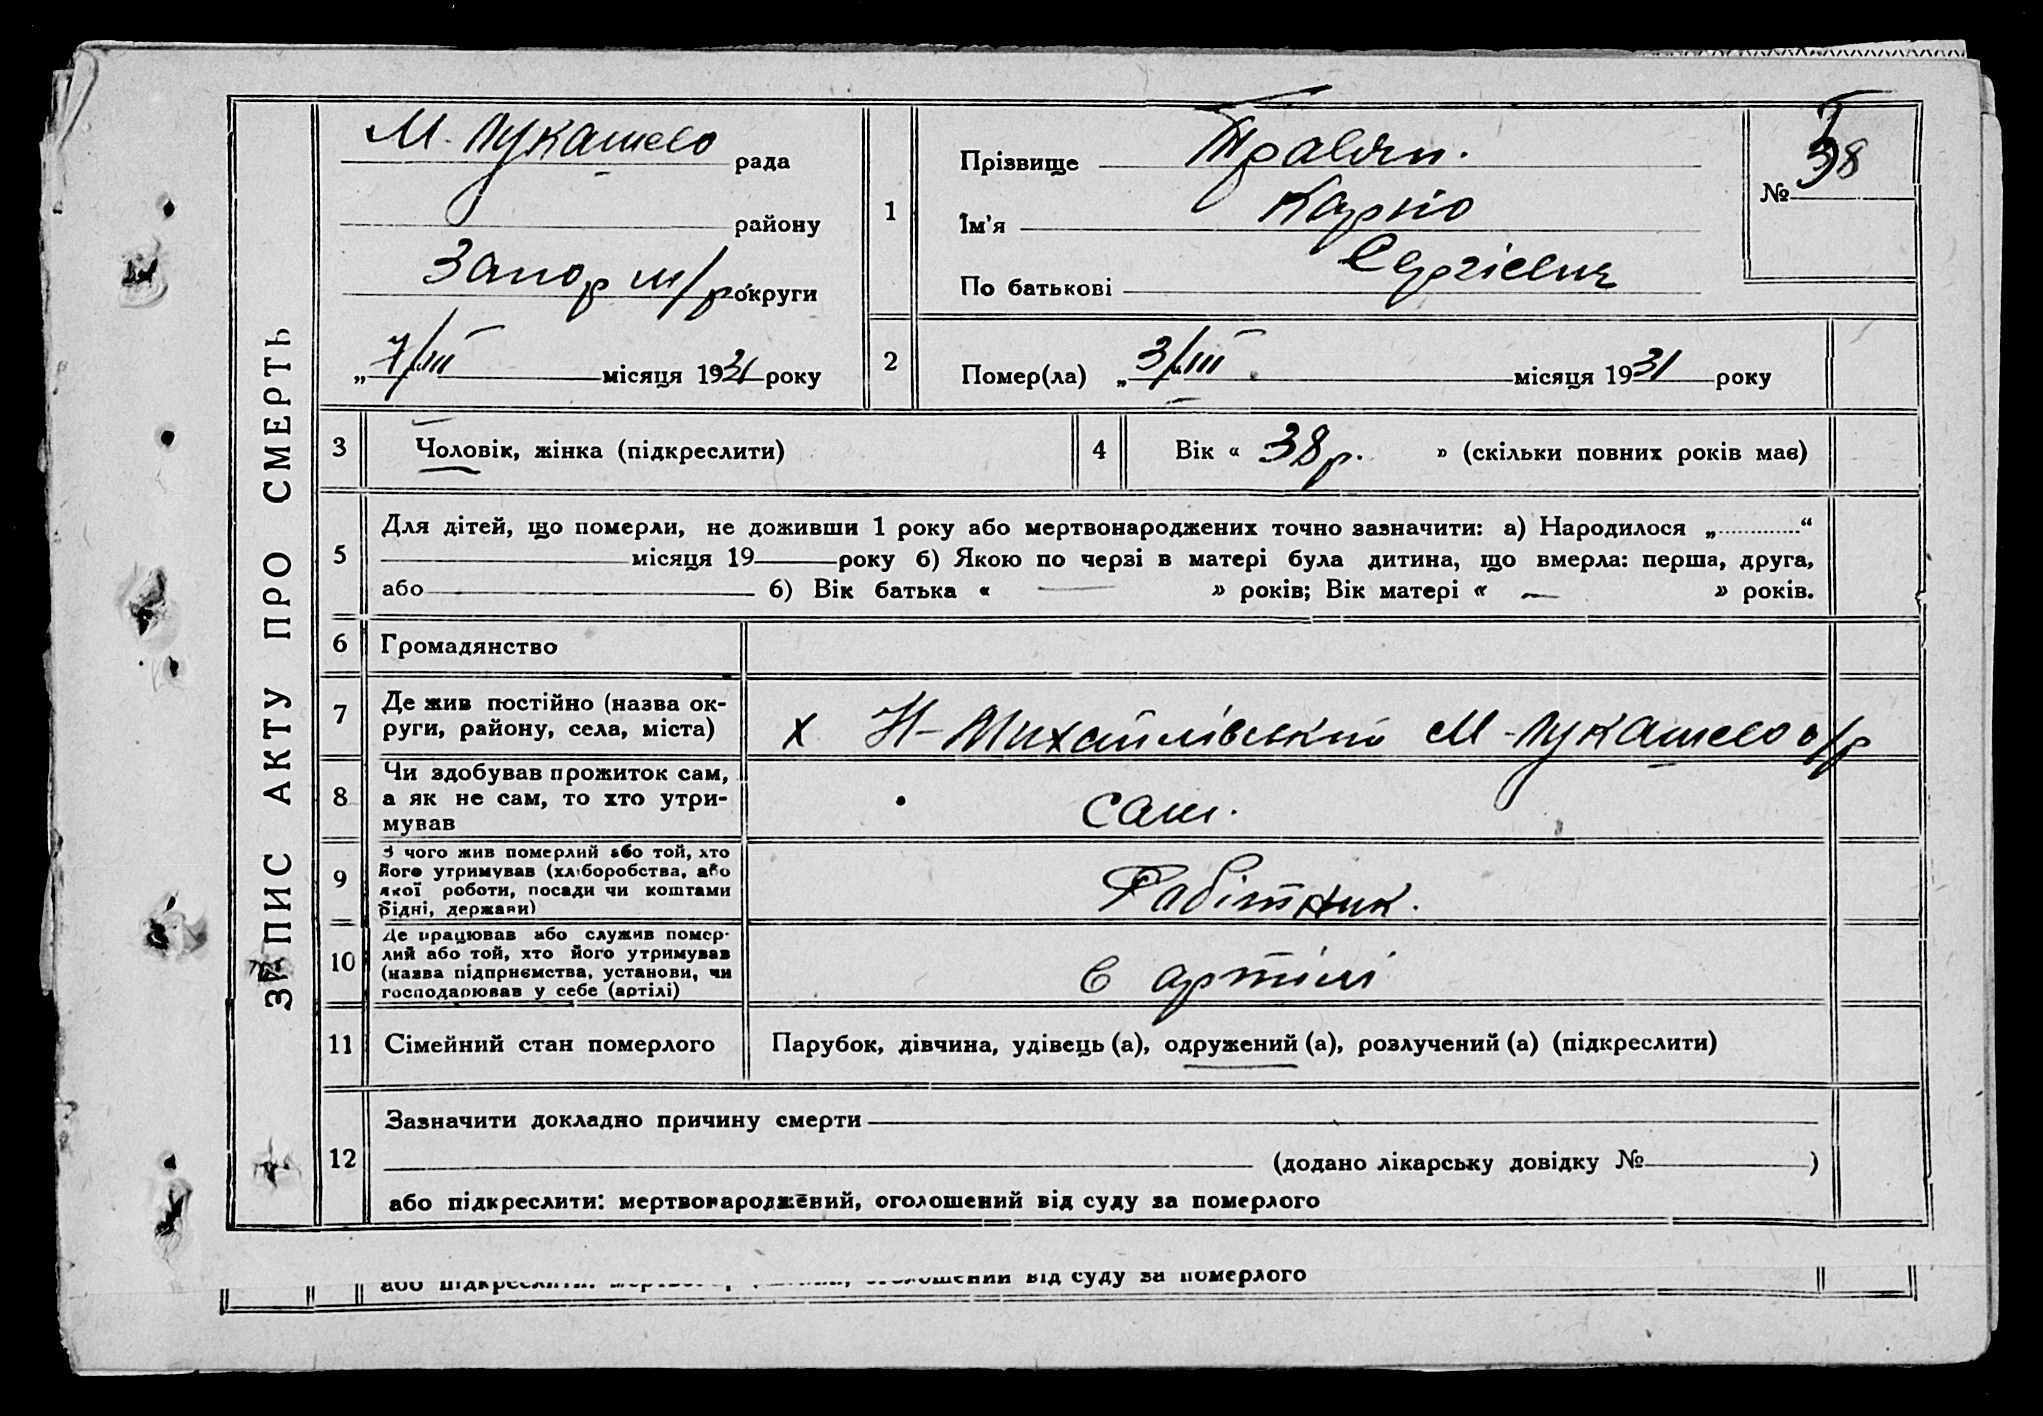 ЗАПИС АКТУ ПРО СМЕРТЬ
М. Лукашево рада
району
Запор м/р округи
„ 7/III місяця 1931 року
1
Прізвище Травян.
Їм'я Карпо
По батькові Сергієвич
№ 38
2
Помер(ла) „ 3/III місяця 1931 року
3 Чоловік, жінка (підкреслити)
4 Вік « 38 р. » (скільки повних років має)
5
Для дітей, що померли, не доживши 1 року або мертвонароджених точно зазначити: а) Народилося „ “
місяця 19 року б) Якою по черзі в матері була дитина, що вмерла: перша, друга,
або б) Вік батька « — » років; Вік матері « — » років.
6 Громадянство
7 Де жив постійно (назва ок-
руги, району, села, міста)
х Н-Михайлівський М-Лукашево с/р
8 Чи здобував прожиток сам,
а як не сам, то хто утри-
мував
сам.
9 З чого жив померлий або той, хто
його утримував (хліборобства, або
якої роботи, посади чи коштами
рідні, держави)
Робітник.
10 Де працював або служив помер-
лий або той, хто його утримував
(назва підприємства, установи, чи
господарював у себе (артілі)
в артілі
11 Сімейний стан померлого
Парубок, дівчина, удівець (а), одружений (а), розлучений (а) (підкреслити)
12
Зазначити докладно причину смерти
(додано лікарську довідку № )
або підкреслити: мертвонароджений, оголошений від суду за померлого
або підкреслити: оголошений від суду за померлого